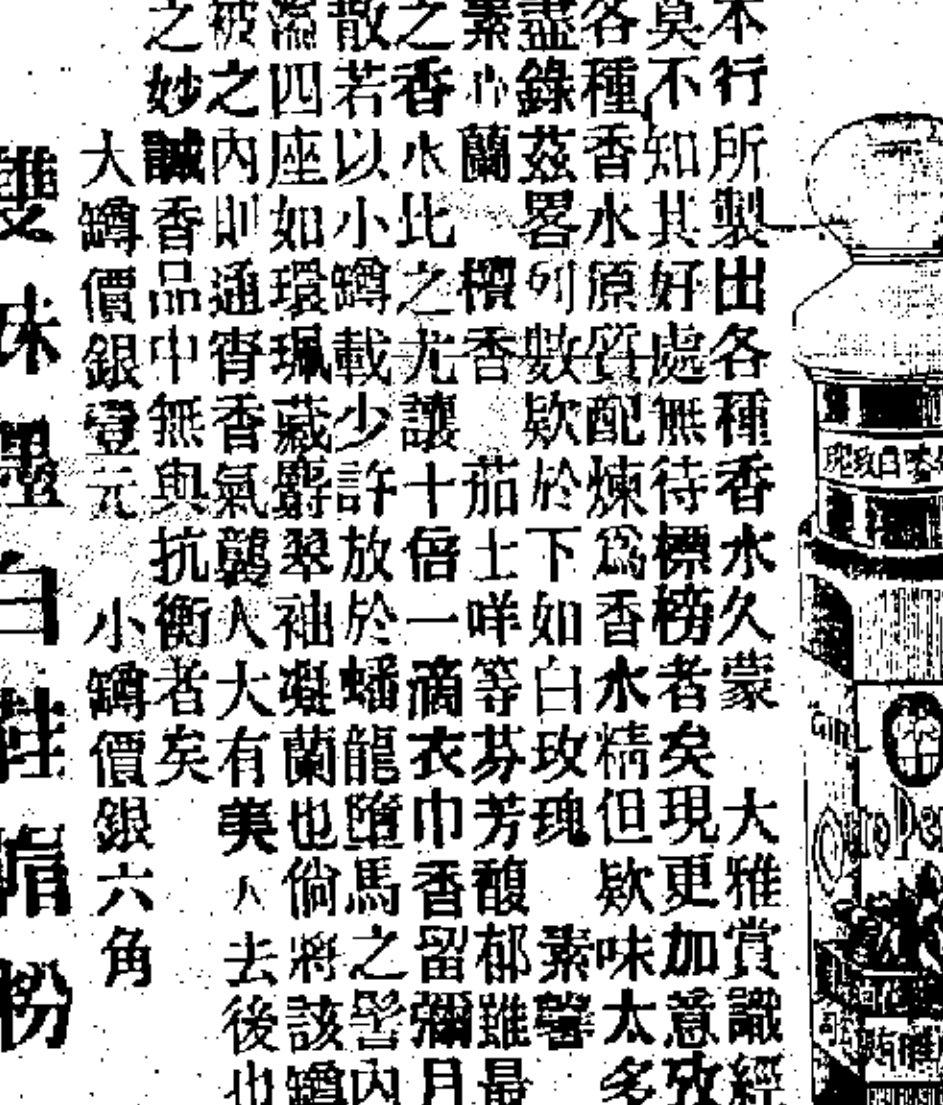 本行所製出各種香水久蒙 大雅賞識經
莫不知其好處無待標榜者矣現更加意攷
各種香水原質配煉爲香水精但欵味太多
盡錄茲畧列數欵於下如白玫瑰 素馨
素心蘭 檀香 茄士咩等芬芳馥郁雖最
之香水比之尤讓十倍一滴衣巾香留彌月
散若以小罇載少許放於蟠龍墮馬之髻內
溢四座如環珮藏麝翠袖凝蘭也倘將該罇
被之內則通宵香氣襲人大有美人去後也
之妙誠香品中無與抗衡者矣
大罇價銀壹元 小罇價銀六角
雙妹墨白鞋帽粉
現玫白
GIR